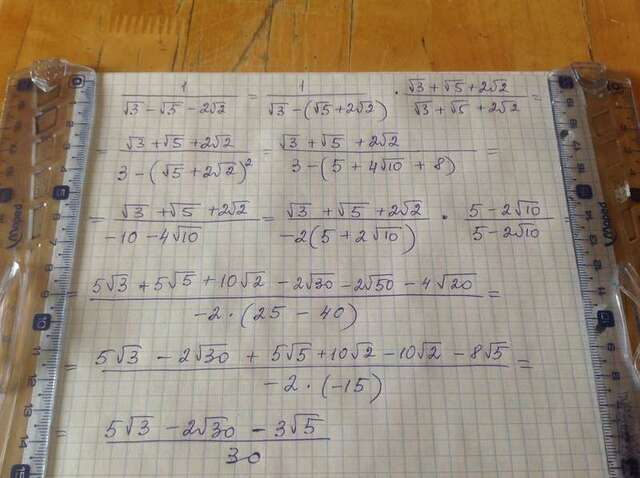 1/(√3 - √5 - 2√2) = 1/(√3 - (√5 + 2√2)) · (√3 + √5 + 2√2)/(√3 + √5 + 2√2) =
= (√3 + √5 + 2√2)/(3 - (√5 + 2√2)²) = (√3 + √5 + 2√2)/(3 - (5 + 4√10 + 8)) =
= (√3 + √5 + 2√2)/(-10 - 4√10) = (√3 + √5 + 2√2)/(-2(5 + 2√10)) · (5 - 2√10)/(5 - 2√10) =
= (5√3 + 5√5 + 10√2 - 2√30 - 2√50 - 4√20)/(-2 · (25 - 40)) =
= (5√3 - 2√30 + 5√5 + 10√2 - 10√2 - 8√5)/(-2 · (-15)) =
= (5√3 - 2√30 - 3√5)/30
Maped
Maped